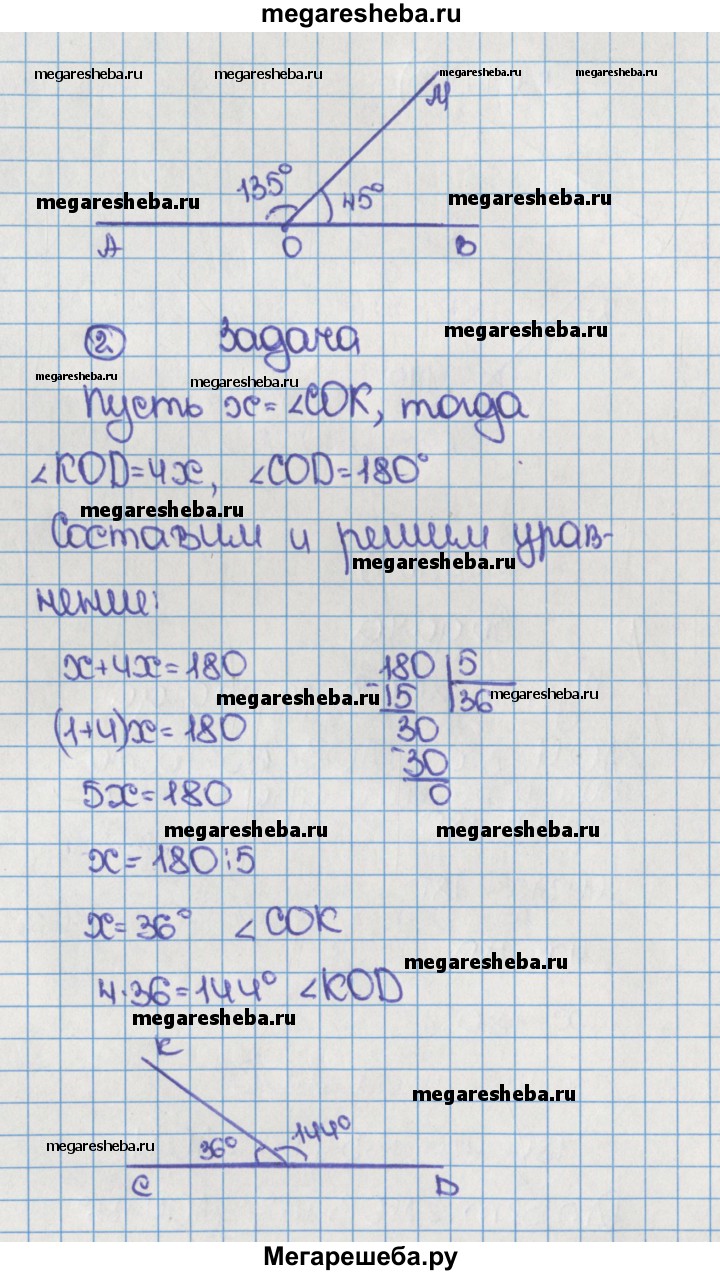 megaresheba.ru
megaresheba.ru megaresheba.ru megaresheba.ru megaresheba.ru
M
135° 45°
megaresheba.ru megaresheba.ru
A O B
2. Задача megaresheba.ru
megaresheba.ru megaresheba.ru
Пусть x=∠COK, тогда
∠KOD=4x, ∠COD=180°
megaresheba.ru
Составим и решим урав-
megaresheba.ru
нение:
x+4x=180 180 5
megaresheba.ru -15 36 megaresheba.ru
(1+4)x=180 30
-30
5x=180 0
megaresheba.ru megaresheba.ru
x=180:5
x=36° ∠COK
megaresheba.ru
4·36=144° ∠KOD
megaresheba.ru
K
megaresheba.ru
36° 144°
megaresheba.ru
C D
Мегарешеба.ру